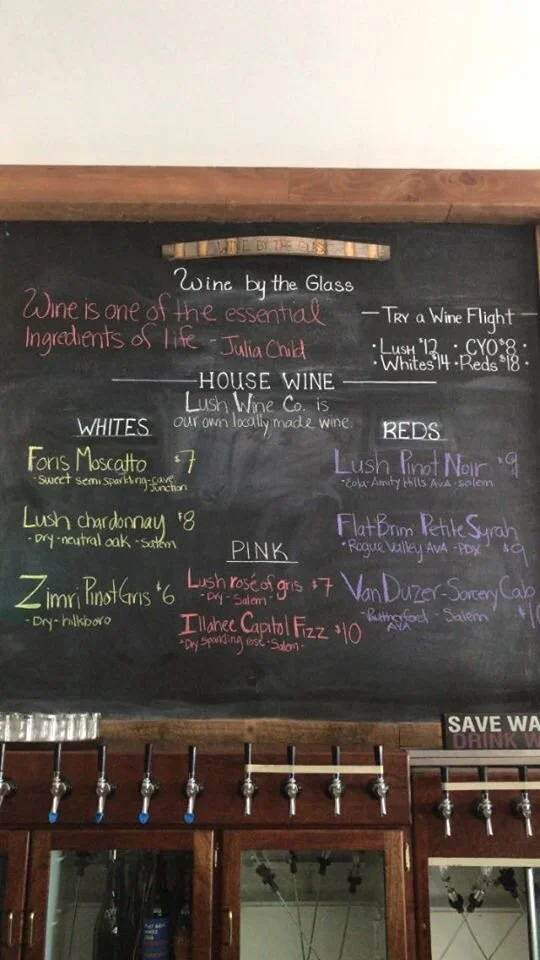 WINE BY THE GLASS
Wine by the Glass
Wine is one of the essential
Ingredients of life - Julia Child
TRY a Wine Flight
· LUSH $12 · CYO $8 ·
· Whites $14 · Reds $18 ·
HOUSE WINE
Lush Wine Co. is
our own locally made wine.
WHITES
Foris Moscatto $7
- Sweet semi sparkling - cave
junction
Lush chardonnay $8
- Dry - neutral oak - Salem
Zimri Pinot Gris $6
- Dry - hillsboro
PINK
Lush rosé of gris $7
- Dry - Salem -
Illahee Capitol Fizz $10
- Dry Sparkling rosé - Salem -
REDS
Lush Pinot Noir $9
- Eola-Amity Hills AVA - Salem
Flat Brim Petite Syrah
- Rogue Valley AVA - PDX $9
Van Duzer - Sorcery Cab
- Rutherford - Salem
AVA
SAVE WA
DRINK W